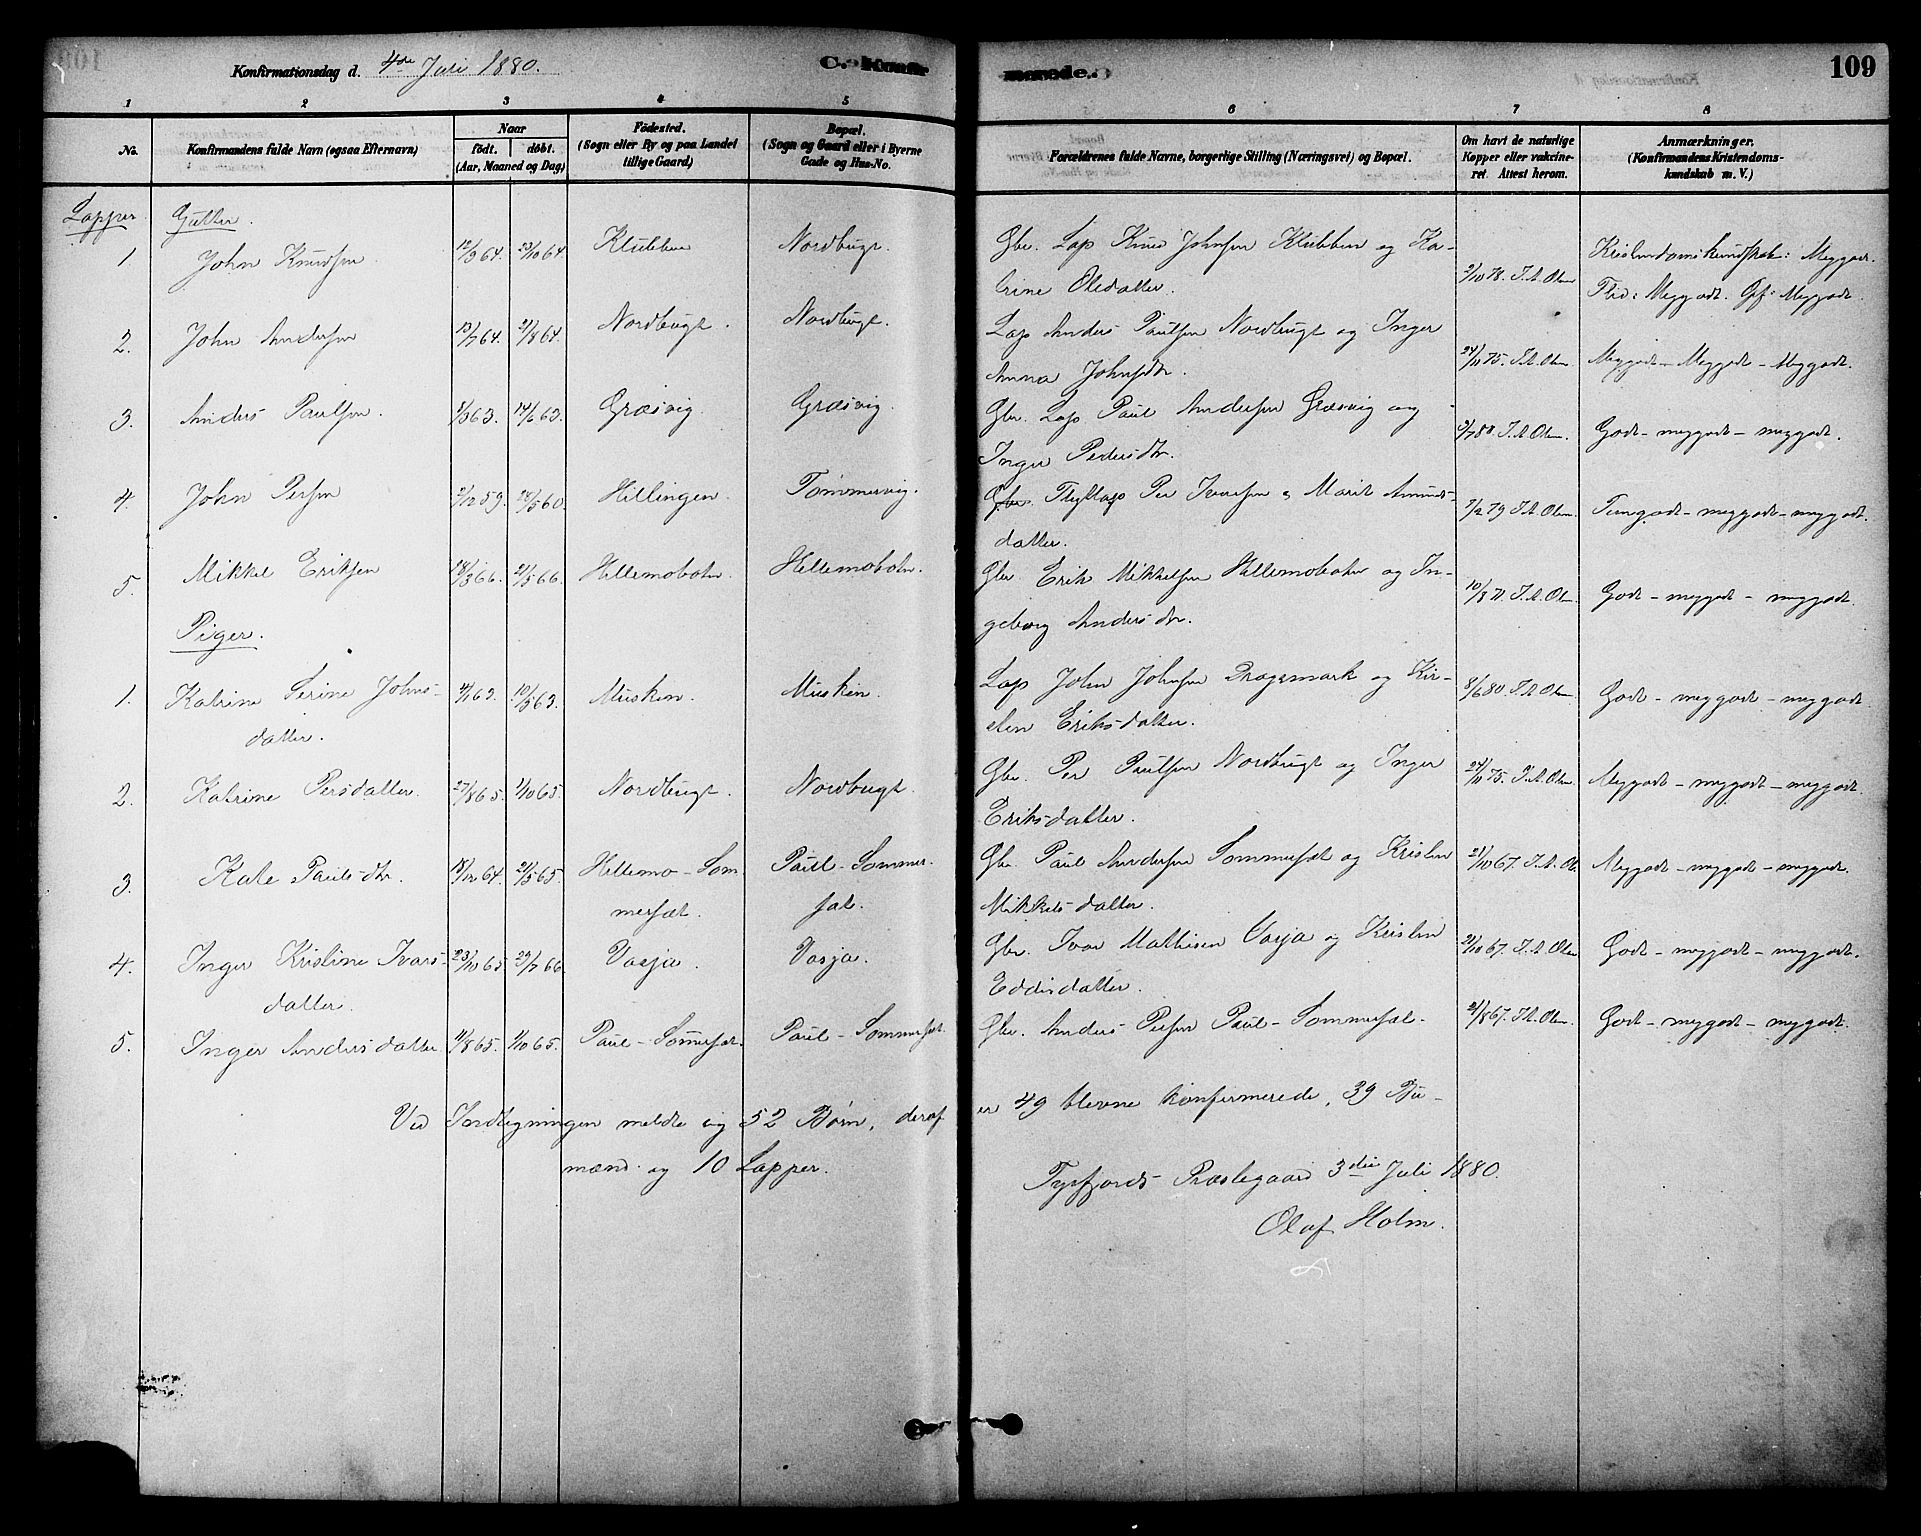 Konfirmationsdag d. 4de Juli 1880. C. Konfirmerede. 109
1 2 3 4 5 6 7 8
No. Konfirmandens fulde Navn (ogsaa Efternavn) Naar født. døbt. (Aar, Maaned og Dag) Fødested. (Sogn eller By og paa Landet tillige Gaard) Bopæl. (Sogn og Gaard eller i Byerne Gade og Hus-No. Forældrenes fulde Navne, borgerlige Stilling (Næringsvei) og Bopæl. Om havt de naturlige Kopper eller vakcineret. Attest herom. Anmærkninger. (Konfirmandens Kristendomskundskab m. V.)
Lapper Gutter.
1 John Knudsen 12/3 64. 23/10 64. Klubben Nordbugt. Gbr. Lap Knud Johnsen Klubben og Ka-
trine Olsdatter. 2/10 78. J. A. Olsen Kristendomskundskab: Meggodt.
Flid: Meggodt. Opf: Meggodt.
2. John Andersen 13/7 64. 21/8 64. Nordbugt. Nordbugt. Lap Anders Paulsen Nordbugt og Inger
Anna Johnsdtr. 24/11 75. J. A. Olsen Meggodt - Meggodt - Meggodt.
3. Anders Paulsen. 1/3 63. 14/6 63. Græsvig. Græsvig. Gbr. Lap Paul Andersen Græsvig og
Inger Pedersdtr. 3/7 80. J. A. Olsen. Godt - meggodt - meggodt.
4. John Persen 2/12 59. 28/5 60. Hillingen. Tømmervig. Gbr Flytlap Per Ivarsen & Marit Amunds-
datter. 7/2 79 J. A. Olsen Temgodt - meggodt - meggodt.
5. Mikkel Eriksen 18/3 66. 21/5 66. Hellemobotn. Hellemobotn. Gbr Erik Mikkelsen Hellemobotn og In-
geborg Andersdtr. 10/8 71. J. A. Olsen Godt - meggodt - meggodt.
Piger.
1. Katrine Serine Johns-
datter. 4/1 63. 10/5 63. Musken. Musken. Lap John Johnsen Dragsmark og Kir-
sten Eriksdatter. 8/6 80 J. A. Olsen Godt - meggodt - meggodt
2. Katrine Persdatter. 27/8 65. 1/10 65. Nordbugt. Nordbugt. Gbr. Per Paulsen Nordbugt og Inger
Eriksdatter. 24/11 75. J. A. Olsen Meggodt - meggodt - meggodt.
3. Kate Paulsdtr. 18/12 64. 21/5 65. Hellemo-Som
mersæt. Paul-Sommer-
sæt. Gbr. Paul Andersen Sommersæt og Kristen
Mikkelsdatter. 21/10 67. J. A. Ols Meggodt - meggodt - meggodt.
4. Inger Kristine Ivars-
datter. 23/10 65 29/7 66 Vasja. Vasja. Gbr. Ivar Mathisen Vasja og Kristen
Eddisdatter. 21/10 67. J. A. Olsen Godt - meggodt - meggodt.
5. Inger Andersdatter 11/8 65. 1/10 65. Paul-Som̄ersæt. Paul-Sommersæt. Gbr. Anders Persen Paul-Sommersæt. 21/8 67. J. A. Olsen. Godt - meggodt - meggodt.
Ved Indtegningen meldte sig 52 Børn, deraf er 49 blevne konfirmerede, 39 Bu-
mænd og 10 Lapper.
Tysfjords Præstegaard 3die Juli 1880.
Olaf Holm.